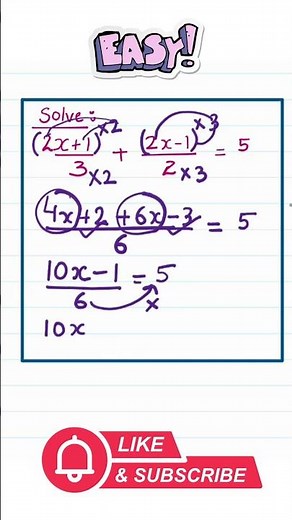 EASY!
Solve:
(2x+1)×2 / 3×2 + (2x-1)×3 / 2×3 = 5
4x+2+6x-3 / 6 = 5
10x-1 / 6 = 5
×
10x
LIKE
& SUBSCRIBE